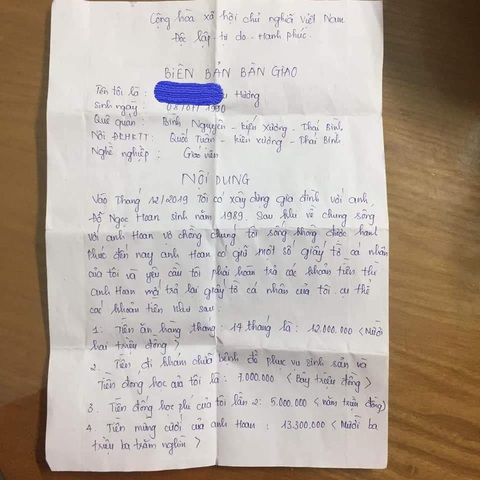 Cộng hòa xã hội chủ nghĩa Việt Nam
Độc lập - tự do - Hạnh phúc.
BIÊN BẢN BÀN GIAO
Tên tôi là : Hương
Sinh ngày : 1990
Quê quán : Bình Nguyên - Kiến Xương - Thái Bình
Nơi ĐKHKTT : Quốc Tuấn - Kiến Xương - Thái Bình
Nghề nghiệp : Giáo viên
NỘI DUNG
Vào Tháng 12/2019 Tôi có xây dựng gia đình với anh
Đỗ Ngọc Hoan sinh năm 1989. Sau khi về chung sống
với anh Hoan vợ chồng chúng tôi sống không được hạnh
phúc đến nay anh Hoan có giữ một số giấy tờ cá nhân
của tôi và yêu cầu tôi phải hoàn trả các khoản tiền thì
anh Hoan mới trả lại giấy tờ cá nhân của tôi cụ thể
các khoản tiền như sau :
1: Tiền ăn hàng tháng : 14 tháng là : 12.000.000 < Mười
hai triệu đồng >
2. Tiền đi khám chữa bệnh để phục vụ sinh sản và
Tiền đóng học của tôi là : 7.000.000 < Bảy triệu đồng >
3. Tiền đóng học phí của tôi lần 2: 5.000.000 < năm triệu đồng >
4 Tiền mừng cưới của anh Hoan : 13.300.000 < Mười ba
triệu ba trăm nghìn >